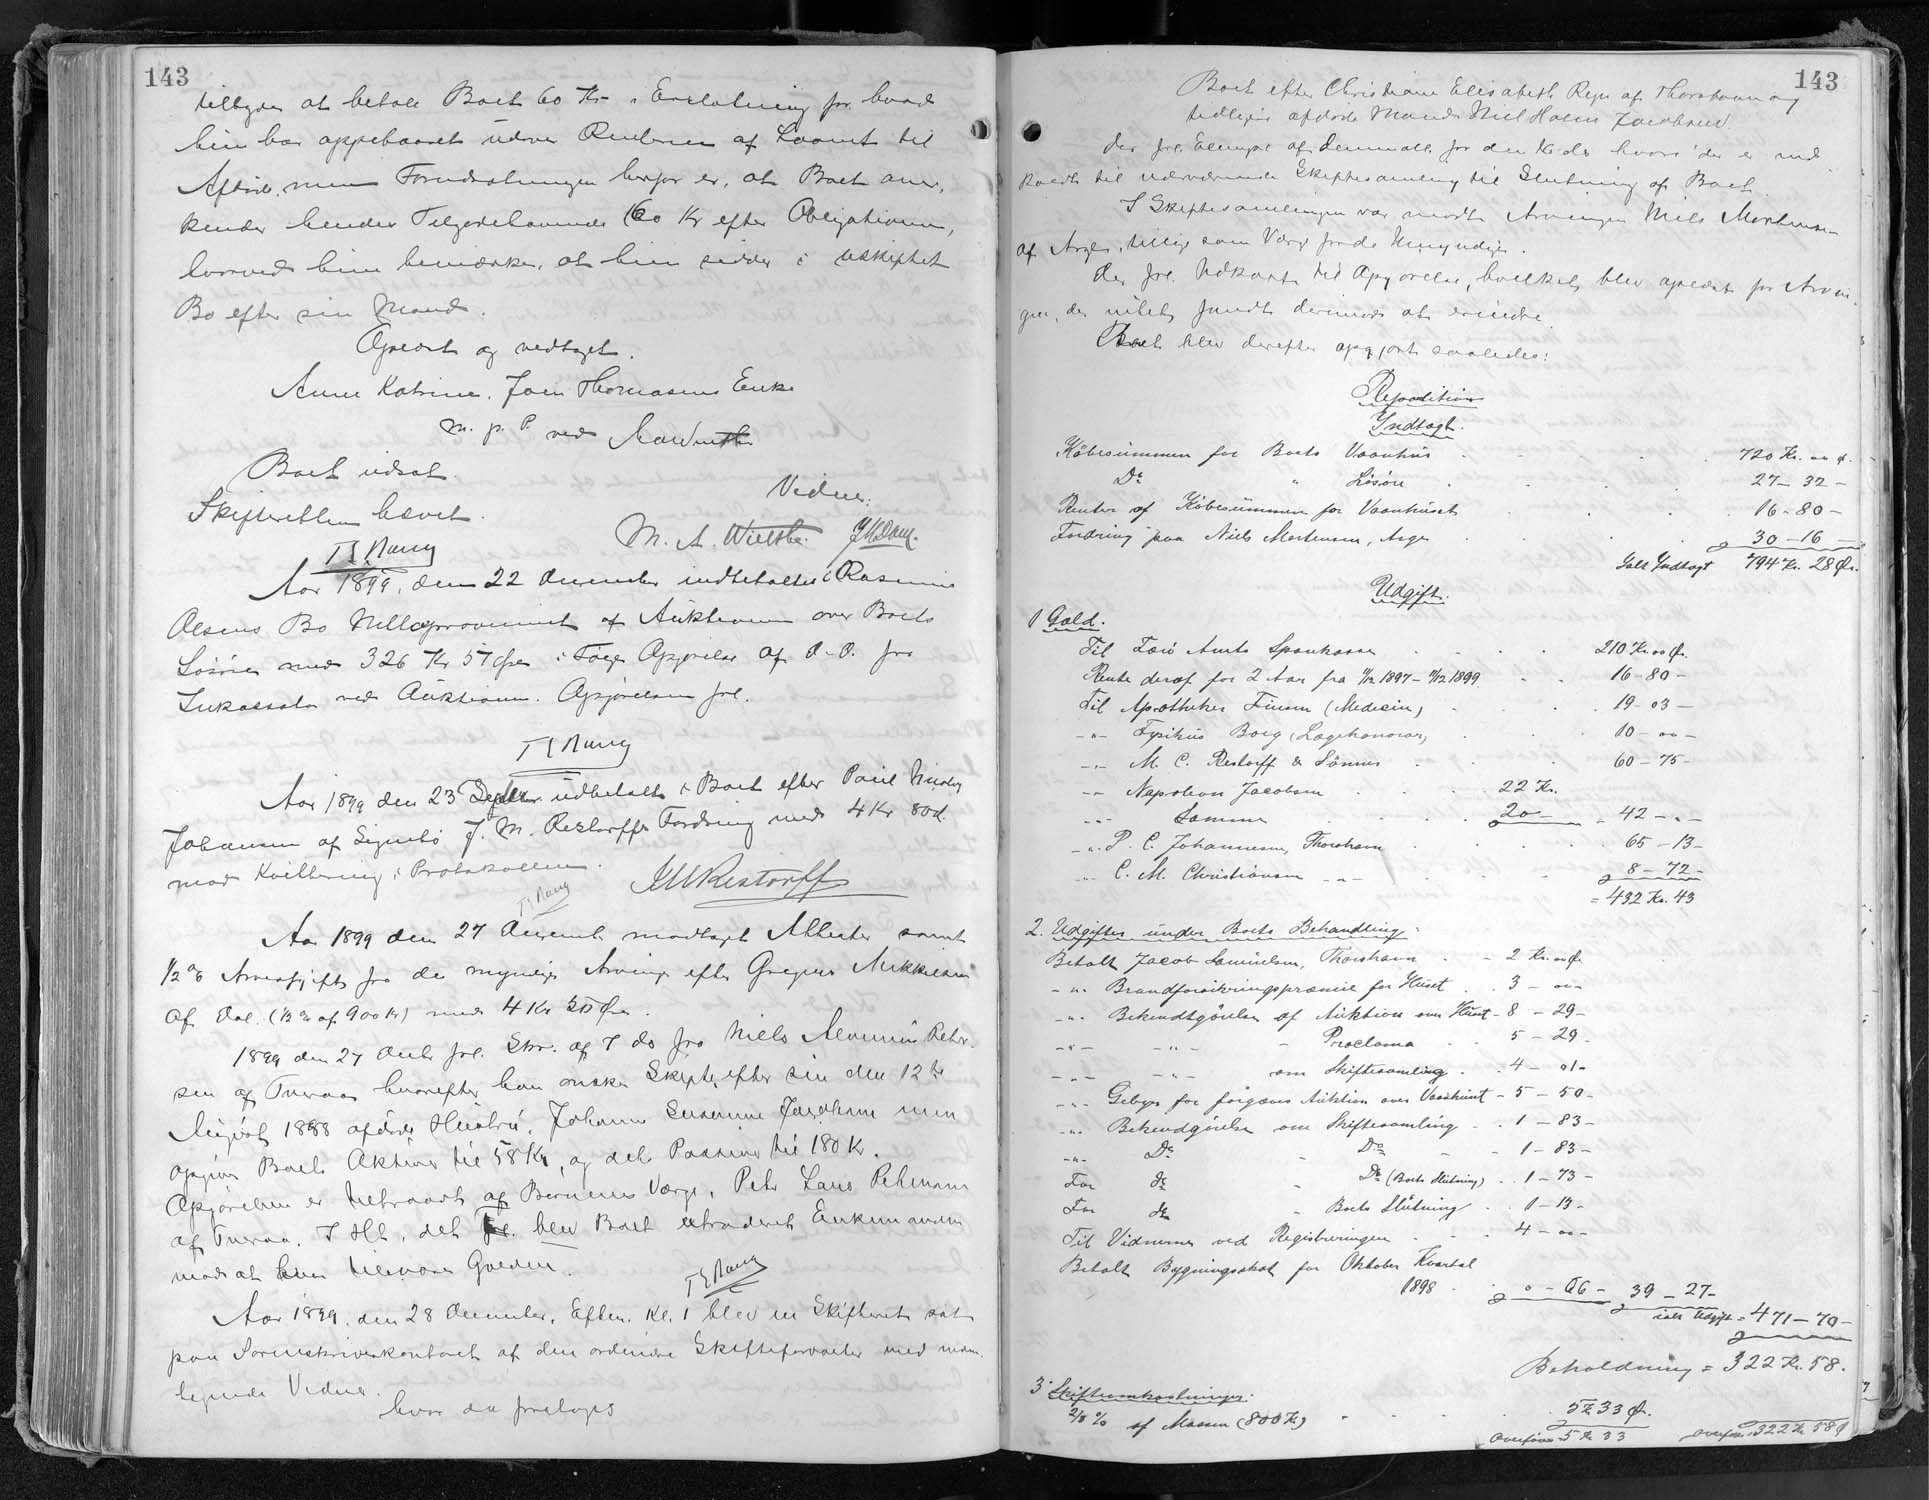 143
tilbyder at betale Boet 60 Kr i Erstatning for hvad
hun har oppebaaret udover Renterne af Laanet til
Afdøde, men Forudsætningen herfor er, at Boet aner-
kender hendes Tilgodehavende 60 Kr efter Obligationen,
hvorved hun bemærker, at hun sidder i uskiftet
Bo efter sin Mand.
Oplæst og vedtaget.
Anne Katrine, Joen Thomasens Enke
m. p. P. ved
Boet udsat.
Skifteretten hævet.
Vidner:
M. A. Winther. J M Dam.
Aar 1899, den 22 December indbetaltes i Rasmus
Olsens Bo Nettoprovenuet af Auktionen over Boets
Løsøre med 326 Kr 57 Øre i Følge Opgørelse af D. D. fra
Inkassator ved Auktionen. Opgørelsen frl.
Aar 1899 den 23 Decbr. udbetalt i Boet efter Poul Nicolaj
Johansen af Signabø J. M. Restorffs Fordring med 4 Kr 80 Ø.
mod Kvittering i Protokollen.
J M Restorff
Aar 1899 den 27 Decemb. modtaget Attester samt
1/2 % Arveafgift fra de myndige Arvinger efter Gregers Mikkelsen
af Dal. (1/2 % af 900 Kr) med 4 Kr 50 Øre.
1899 den 27 Decbr frl. Skr. af 7 ds fra Niels Peter-
sen af Tveraa hvorefter han ønsker Skifte efter sin den 12te
August 1888 afdøde Hustru, Johanne Susanne men
opgiver Boets Aktiver til 58 Kr, og dets Passiver til 180 Kr.
Opgørelsen er tiltraadt af Børnenes Værge, Peter Lars Petersen
af Tveraa. I Hh. t. det frl. blev Boet extraderet Enkemanden
mod at han tilsvarer Gælden.
Aar 1899, den 28 December, Efterm. Kl. 1 blev en Skifteret sat
paa Sorenskriverkontoret af den ordinære Skifteforvalter med neden-
tegnede Vidner.
hvor da foretoges
143
Boet efter Christiane Elisabeth af Thorshavn og
tidligere afdøde Mand Niels Hans Jacobsen
Der frl. Exempl. af Dimmalætt. for den 16 ds hvori der er ind-
kaldt til nærværende Skiftesamling til Slutning af Boet.
I Skiftesamlingen var mødt Arvingen Niels Mortensen
af Arge, tillige som Værge for de Umyndige.
Der frl. Udkast til Opgørelse, hvilket blev oplæst for Arvin-
gen, der intet fandt derimod at erindre.
Boet blev derefter opgjort saaledes:
Reposition
Indtægt.
Købesummen for Boets Vaanhus 720 Kr. 00 Ø.
Do " Løsøre 27 - 32 -
Renter af Købesummen for Vaanhuset 16 - 80 -
Fordring paa Niels Mortensen, Arge 30 - 16 -
Ialt Indtægt 794 Kr. 28 Ør.
Udgift.
1 Gæld.
Til Færø Amts Sparekasse 210 Kr. 00 Ør.
Rente deraf for 2 Aar fra 11/12 1897 - 11/12 1899 16 - 80 -
Til Apotheker Finsen (Medicin) 19 - 03 -
- " - Fysikus Boeg (Lægehonorar) 10 - 00 -
- " - M. C. Restorff & Sønner 60 - 75 -
- " - Napoleon Jacobsen 22 Kr.
- " - Samme 20 - = 42 - " -
- " - P. C. Johannesen, Thorshavn 65 - 13 -
- " - C. M. Christiansen - " - 8 - 72 -
= 432 Kr. 43
2. Udgifter under Boets Behandling:
Betalt Jacob Samuelsen, Thorshavn 2 Kr. 00 Ø.
- " - Brandforsikringspræmie for Huset 3 - 00 -
- " - Bekendtgørelse af Auktion over Huset 8 - 29 -
- " - - " - - Proclama 5 - 29 -
- " - - " - om Skiftesamling 4 - 01 -
- " - Gebyr for forgæves Auktion over Vaanhuset 5 - 50 -
- " - Bekendtgørelse om Skiftesamling 1 - 83 -
- " - Do - Do 1 - 83 -
For do - Do (Boets Slutning) 1 - 73 -
For do - Boets Slutning 1 - 13 -
Til Vidnerne ved Registreringen 4 - 00 -
Betalt Bygningsskat for Oktober Kvartal
1898 0 - 66 - 39 - 27 -
ialt Udgift = 471 - 70 -
Beholdning = 322 Kr. 58.
3. Skifteomkostninger:
2/3 % af Massen (800 Kr) 5 Kr 33 Ø.
Overføres 5 Kr 33 overføres 322 Kr 58 Ø